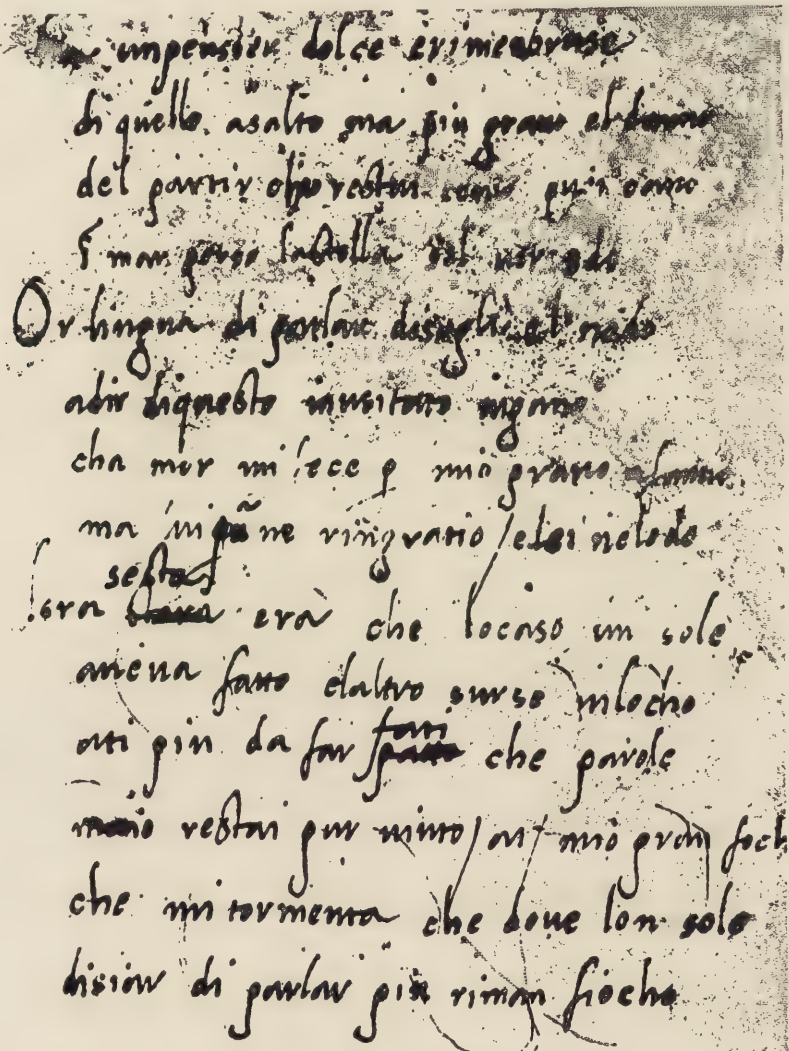 un pensier dolce e rimenbrase
di quello asalto ma piu grave el danno
del partir chio restai como
mar perso la stella del
Or lingua di parlar disogli el nodo
a dir di questo inusitato ingano
cha mor mi fece p mio gravo afanno
ma ne ringratio / e lei nelodo
sesta
lora era che locaso un sole
aueua fatto e laltro surse in locho
ati piu da far fati che parole
restai pur uinto / al mio gran foch
che mi tormenta che doue lon sole
disiar di parlar piu riman fiocho